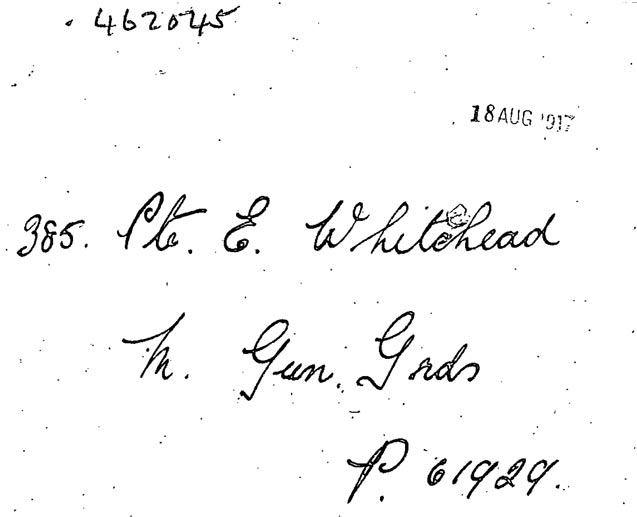 462045
18 AUG 1917
385. Pte. E. Whitehead
M. Gun. Grds
P. 61929.